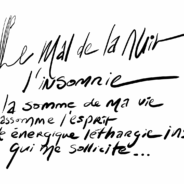 Le Mal de la Nuit
l'insomnie
la somme de ma vie
assomme l'esprit
énergique léthargie
qui me sollicite...